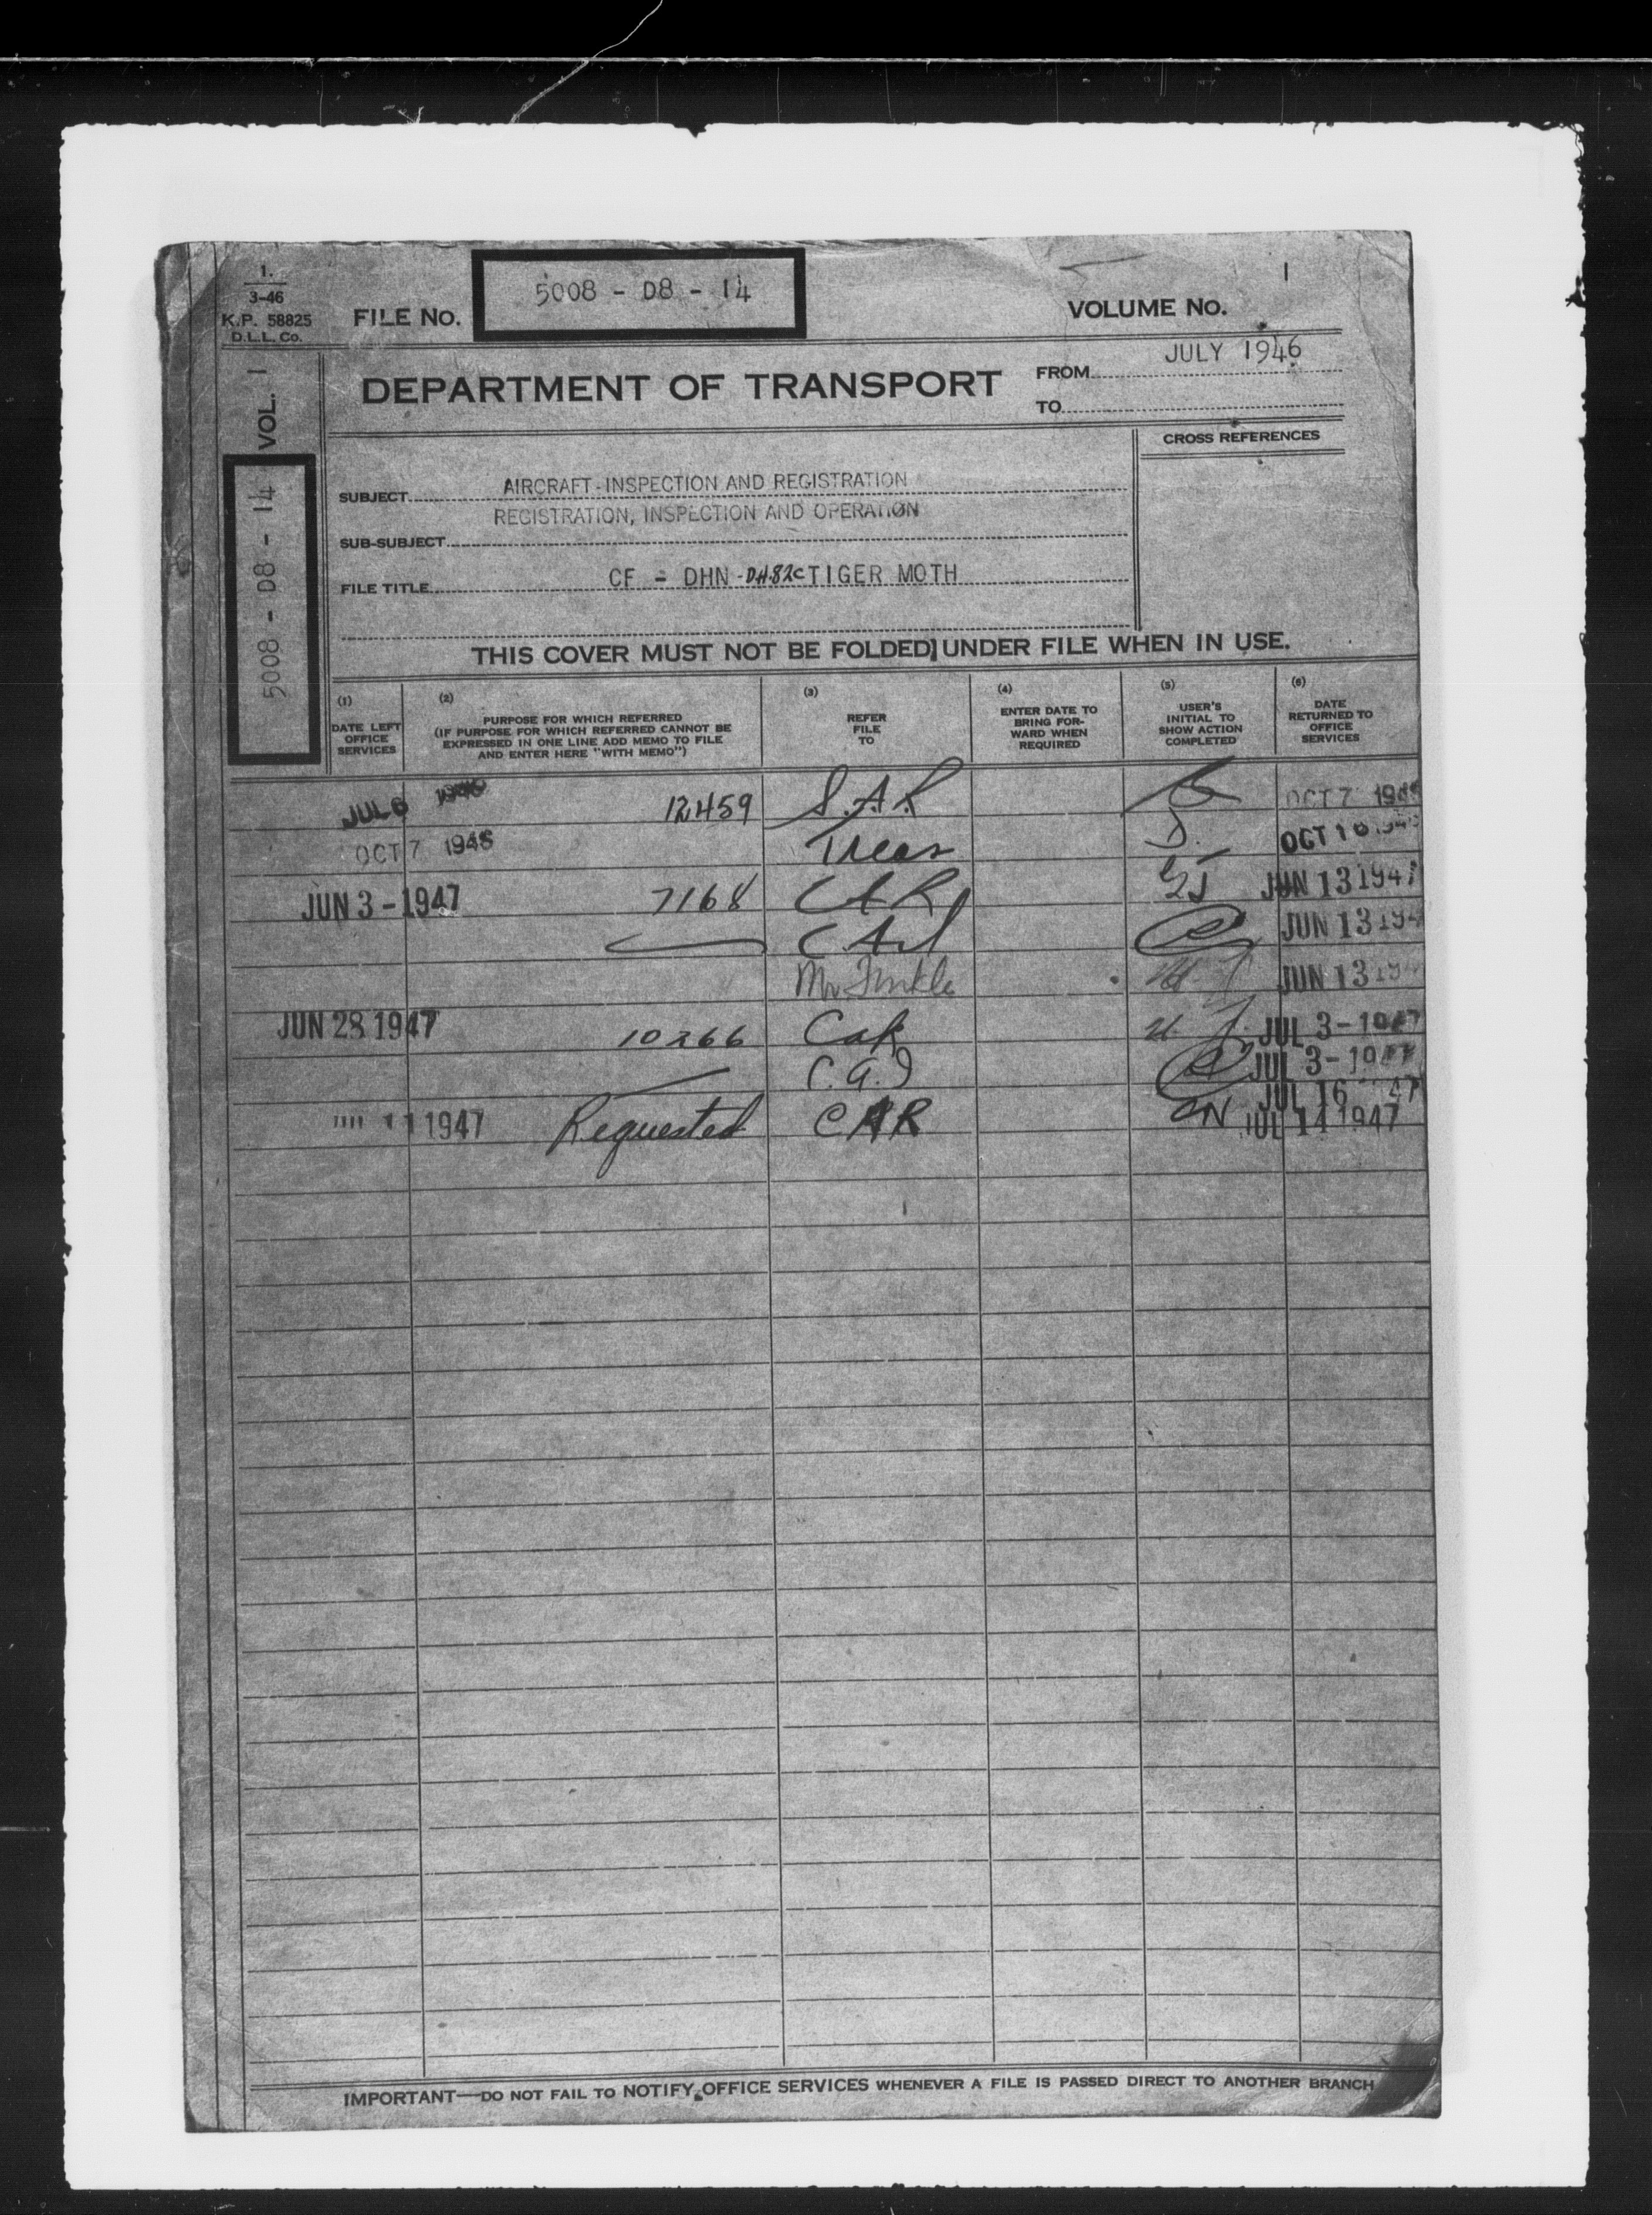 1.
3-46
K.P. 58825
D.L.L. Co.
FILE No. 5008 - D8 - 14
VOLUME No. 1
DEPARTMENT OF TRANSPORT
FROM JULY 1946
TO
VOL. 1
5008 - D8 - 14
CROSS REFERENCES
SUBJECT AIRCRAFT-INSPECTION AND REGISTRATION
REGISTRATION, INSPECTION AND OPERATION
SUB-SUBJECT
FILE TITLE CF - DHN - DH.82C TIGER MOTH
THIS COVER MUST NOT BE FOLDED UNDER FILE WHEN IN USE.
(1) DATE LEFT OFFICE SERVICES
(2) PURPOSE FOR WHICH REFERRED (IF PURPOSE FOR WHICH REFERRED CANNOT BE EXPRESSED IN ONE LINE ADD MEMO TO FILE AND ENTER HERE "WITH MEMO")
(3) REFER FILE TO
(4) ENTER DATE TO BRING FOR-WARD WHEN REQUIRED
(5) USER'S INITIAL TO SHOW ACTION COMPLETED
(6) DATE RETURNED TO OFFICE SERVICES
JUL 6 12459 OCT 7
OCT 7 Treas D. OCT
JUN 3 - 1947 7168 CAR JUN 13 1947
JUN 13
Mr JUN 13
JUN 28 1947 10266 CAR JUL 3 - 1947
C.A.I JUL 3 -
JUL 16 47
11 1947 Requested CAR JUL 14 1947
IMPORTANT—DO NOT FAIL TO NOTIFY OFFICE SERVICES WHENEVER A FILE IS PASSED DIRECT TO ANOTHER BRANCH